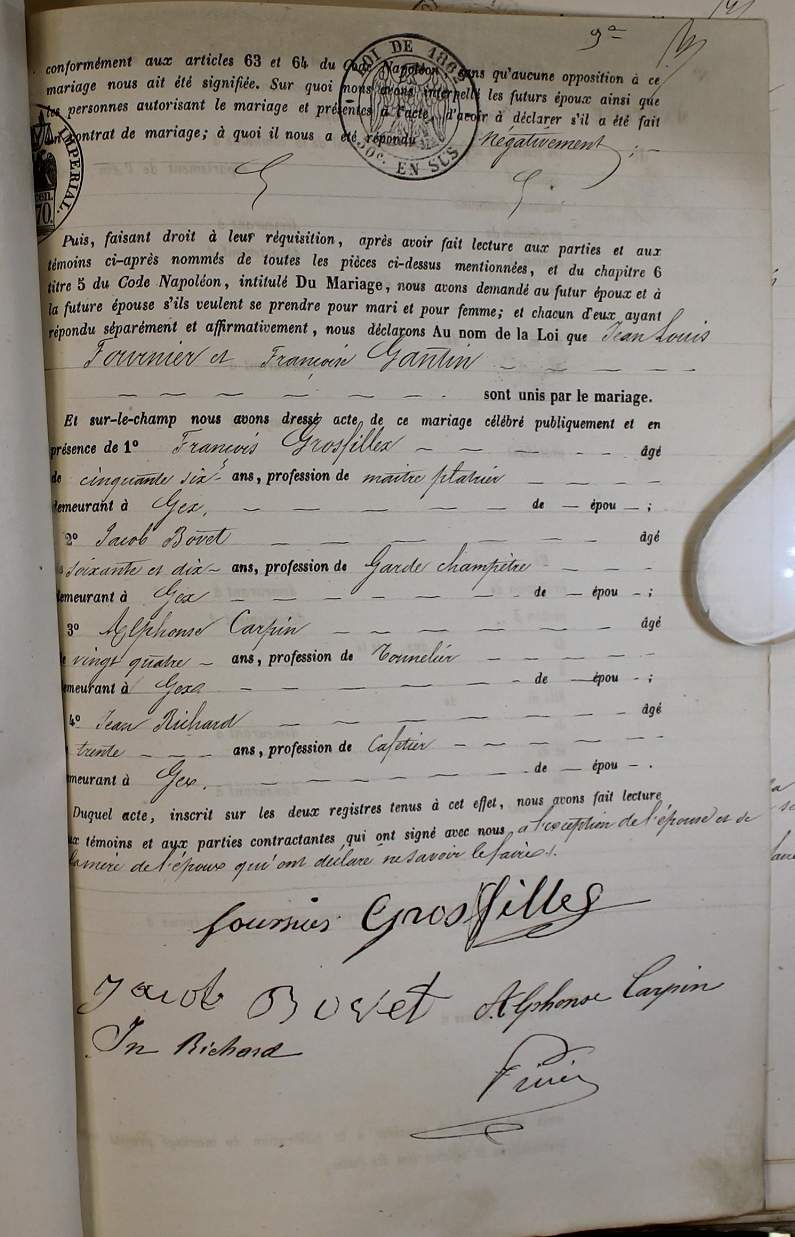 9
LOI DE 1862
50c. EN SUS
IMPERIAL.
70.
conformément aux articles 63 et 64 du Code Napoléon, sans qu'aucune opposition à ce
mariage nous ait été signifiée. Sur quoi nous avons interpellé les futurs époux ainsi que
les personnes autorisant le mariage et présentes à l'acte, d'avoir à déclarer s'il a été fait
un contrat de mariage; à quoi il nous a été répondu Négativement; —
Puis, faisant droit à leur réquisition, après avoir fait lecture aux parties et aux
témoins ci-après nommés de toutes les pièces ci-dessus mentionnées, et du chapitre 6
titre 5 du Code Napoléon, intitulé Du Mariage, nous avons demandé au futur époux et à
la future épouse s'ils veulent se prendre pour mari et pour femme; et chacun d'eux ayant
répondu séparément et affirmativement, nous déclarons Au nom de la Loi que Jean Louis
Fournier et Gantin — — — — —
— — — — — — — sont unis par le mariage.
Et sur-le-champ nous avons dressé acte de ce mariage célébré publiquement et en
présence de 1º François Grosfillex — — — — — âgé
de cinquante six ans, profession de maitre platrier — — — —
demeurant à Gex, — — — — — — de — épou — ;
2º Jacob Bovet — — — — — — — — âgé
soixante et dix — ans, profession de Garde champêtre — — —
demeurant à Gex — — — — — — — de — épou — ;
3º Alphonse Carpin — — — — — — — âgé
vingt quatre — ans, profession de Tonnelier — — — — —
emeurant à Gex — — — — — — — de — épou — ;
4º Jean Richard — — — — — — — — âgé
trente — — — ans, profession de Cafetier — — — — — —
emeurant à Gex. — — — — — — — de — épou — .
Duquel acte, inscrit sur les deux registres tenus à cet effet, nous avons fait lecture
ux témoins et aux parties contractantes qui ont signé avec nous a l'exception de l'épouse et de
la mère de l'époux qui ont déclaré ne savoir le faire.
fournier Grosfillex
Jacob Bovet Alphonse Carpin
Jn Richard